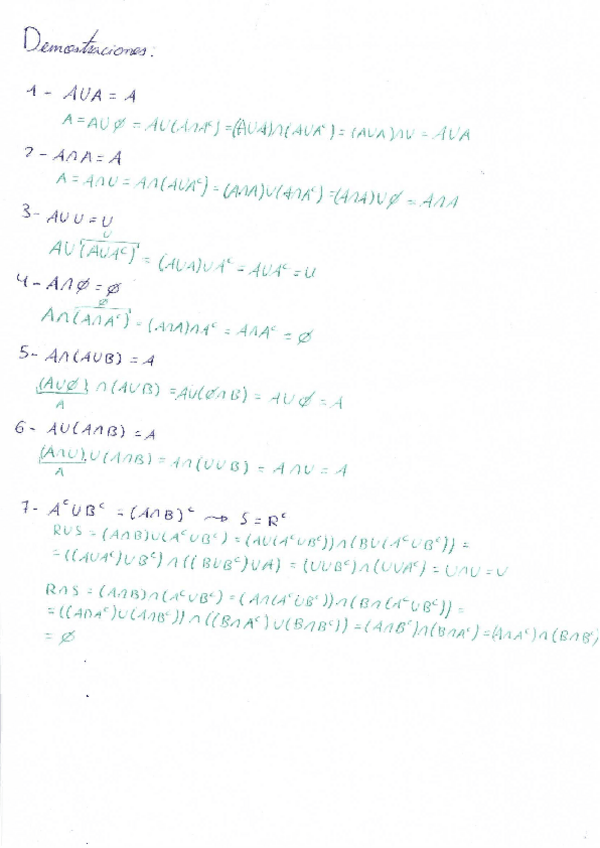 Demostraciones:
1 - A∪A = A
A = A∪∅ = A∪(A∩Aᶜ) = (A∪A)∩(A∪Aᶜ) = (A∪A)∩U = A∪A
2 - A∩A = A
A = A∩U = A∩(A∪Aᶜ) = (A∩A)∪(A∩Aᶜ) = (A∩A)∪∅ = A∩A
3 - A∪U = U
U
A∪(A∪Aᶜ) = (A∪A)∪Aᶜ = A∪Aᶜ = U
4 - A∩∅ = ∅
∅
A∩(A∩Aᶜ) = (A∩A)∩Aᶜ = A∩Aᶜ = ∅
5 - A∩(A∪B) = A
(A∪∅) ∩ (A∪B) = A∪(∅∩B) = A∪∅ = A
A
6 - A∪(A∩B) = A
(A∩U)∪(A∩B) = A∩(U∪B) = A∩U = A
A
7 - Aᶜ∪Bᶜ = (A∩B)ᶜ ⤳ S = Rᶜ
R∪S = (A∩B)∪(Aᶜ∪Bᶜ) = (A∪(Aᶜ∪Bᶜ))∩(B∪(Aᶜ∪Bᶜ)) =
= ((A∪Aᶜ)∪Bᶜ)∩((B∪Bᶜ)∪A) = (U∪Bᶜ)∩(U∪Aᶜ) = U∩U = U
R∩S = (A∩B)∩(Aᶜ∪Bᶜ) = (A∩(Aᶜ∪Bᶜ))∩(B∩(Aᶜ∪Bᶜ)) =
= ((A∩Aᶜ)∪(A∩Bᶜ))∩((B∩Aᶜ)∪(B∩Bᶜ)) = (A∩Bᶜ)∩(B∩Aᶜ) = (A∩Aᶜ)∩(B∩Bᶜ)
= ∅